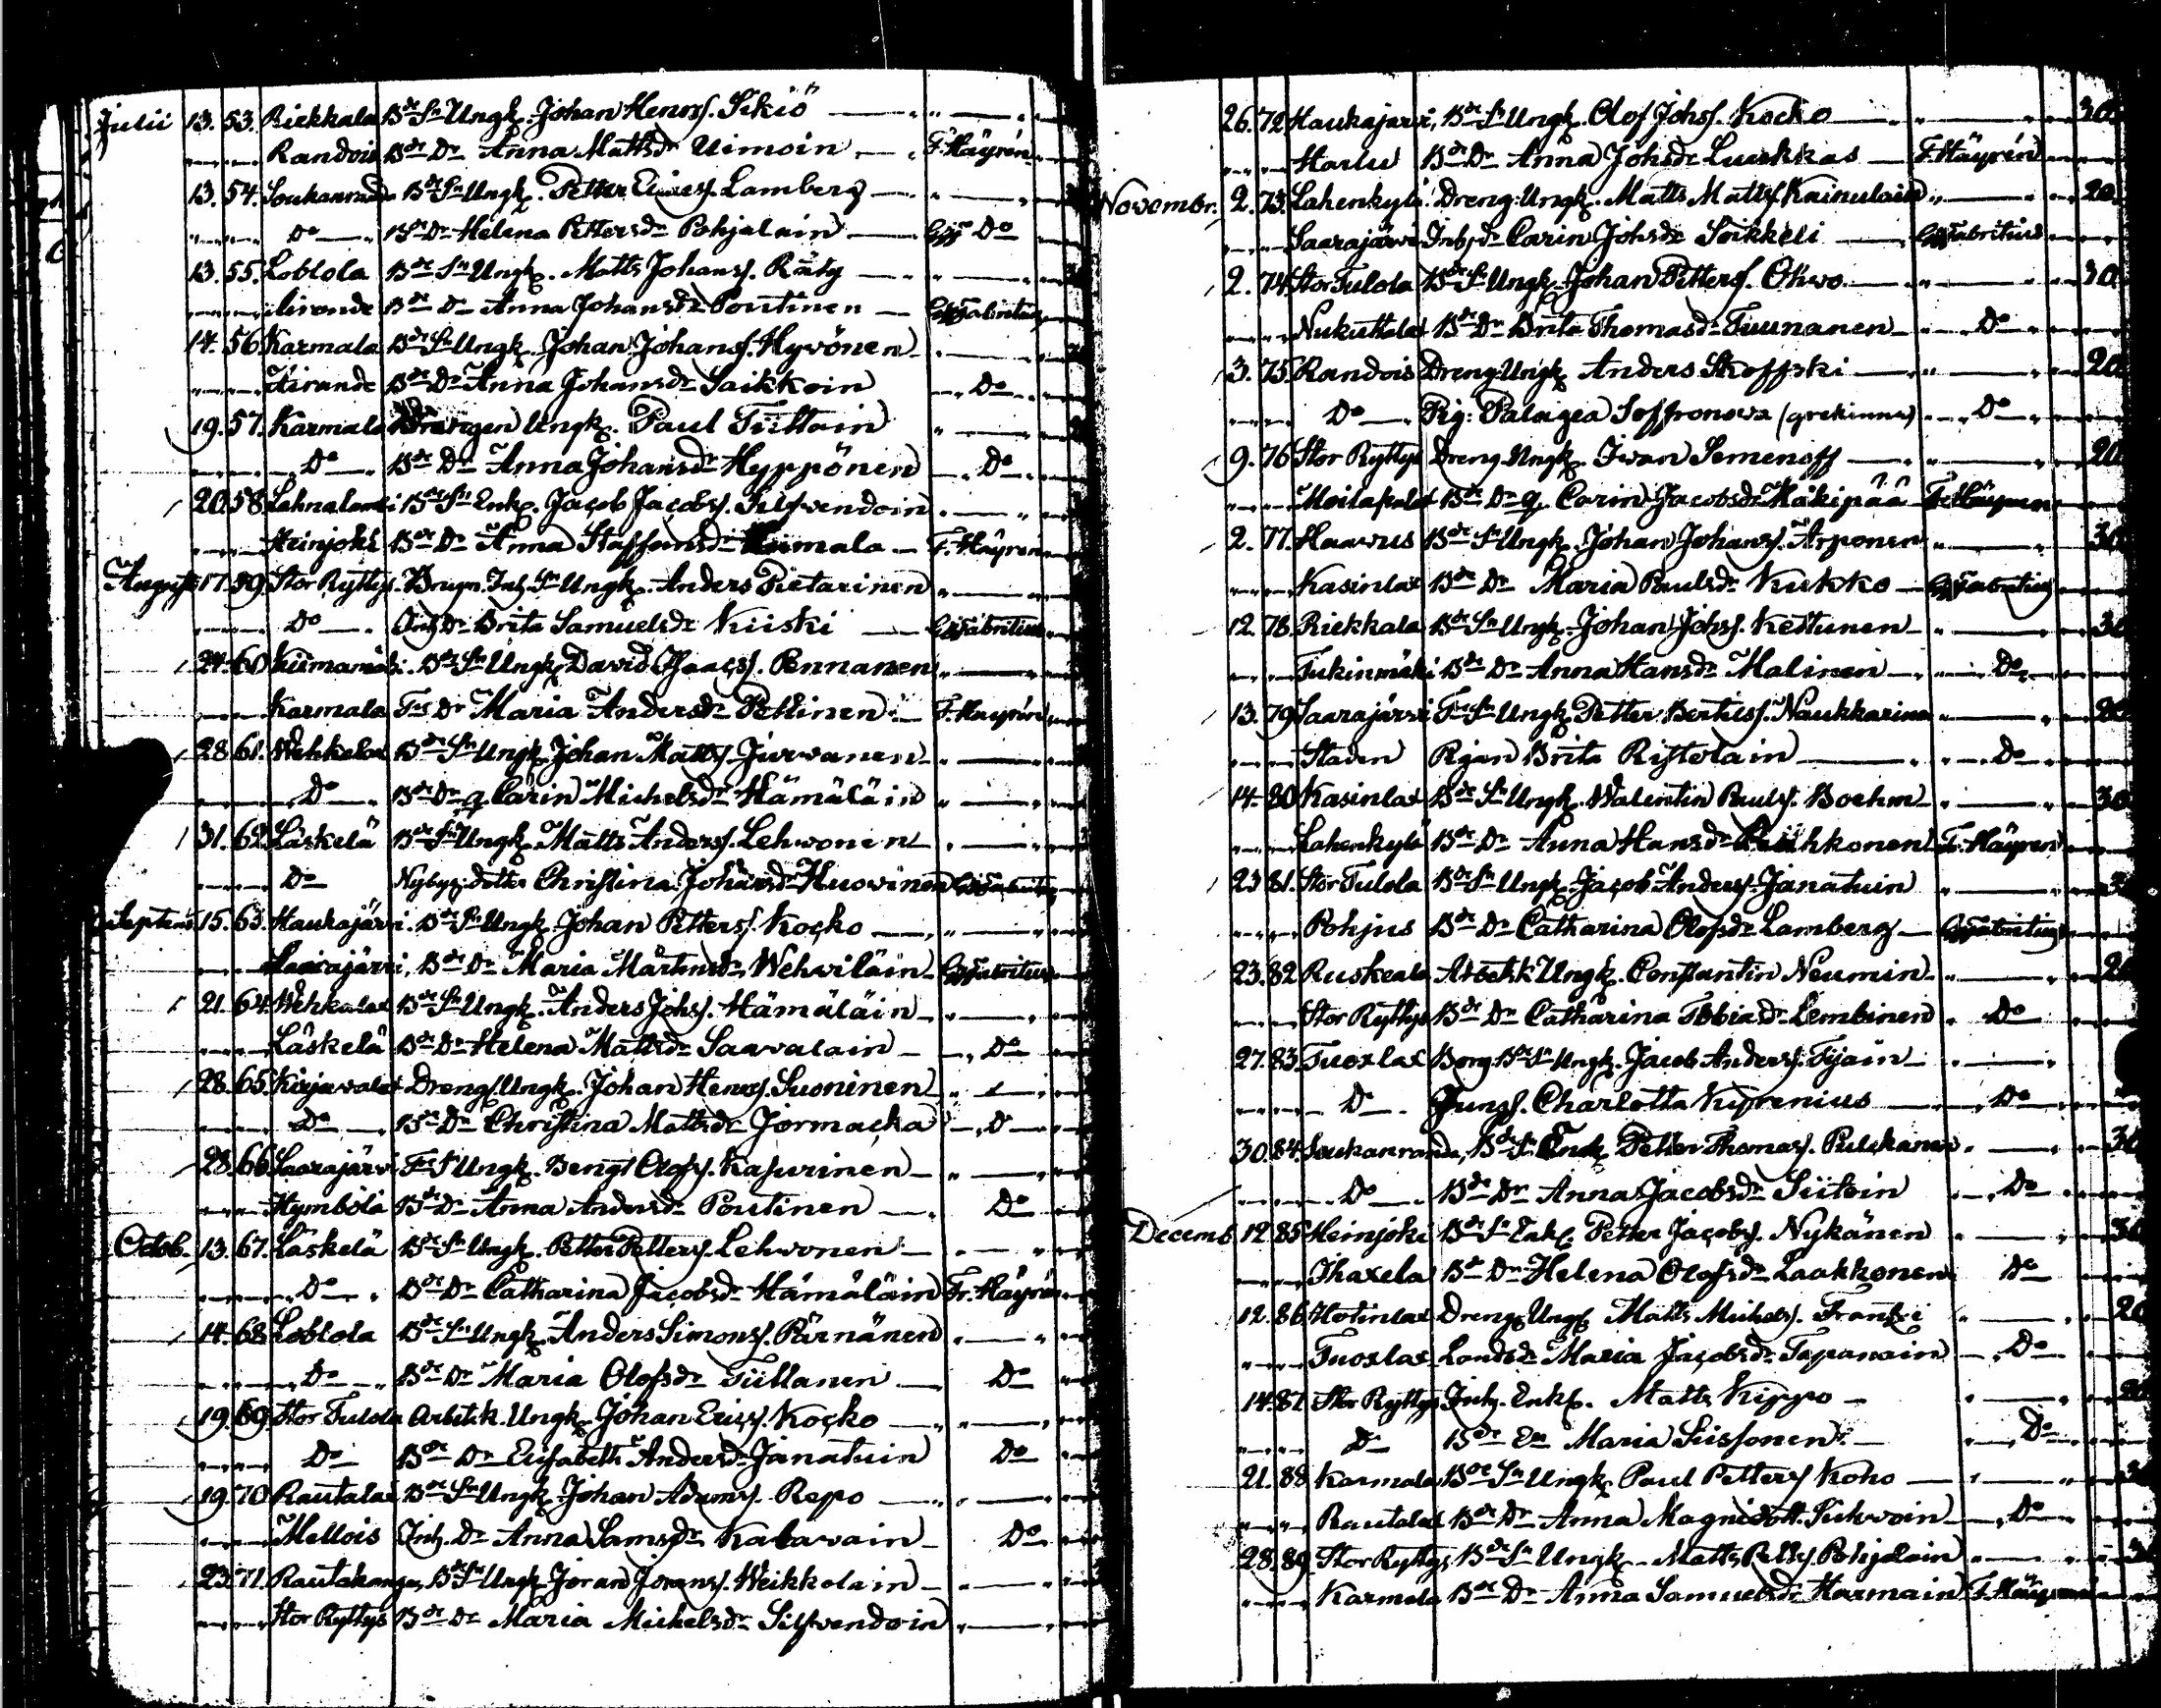 Julii 13. 53. Riekkala Bde Sn Ungk. Johan Henrs. Sikiö
Randois Bde Dr Anna Mattsdr Uimoin F. Häyrén
13. 54. Soukanrand Bde Sn Ungk. Petter Erics. Lamberg
Do Bde Dr Helena Pettersdr Pohjalain Do
13. 55. Loblola Bde Sn Ungk. Matts Johans. Räty
Bde Dr Anna Johansdr Poutinen Fabritius
14. 56. Karmala Bde Sn Ungk. Johan Johans. Hyvönen
Airande Bde Dr Anna Johansdr Saikkoin Do
19. 57. Karmala Drängen Ungk. Paul Tiittain
Do Bde Dr Anna Johansdr Hyppönen Do
20. 58. Lahnalami Bde Sn Enk. Jacob Jacobs. Silfvendoin
Heinjoki Bde Dr Anna Staffansdr F. Häyren
August 17. 59. Stor Ryttys. Inh. Sn Ungk. Anders Pietarinen
Do Inh. Dr Brita Samuelsdr Kiiski Fabritius
24. 60. Kiimamäki. Bde Sn Ungk. David Isaacs. Pennanen
Karmala Dr Maria Andersdr Pettinen F. Häyrén
28. 61. Wehkalax Bde Sn Ungk. Johan Matts. Jurvanen
Do Bde Dr q. Carin Michelsdr Hämäläin
31. 62. Läskelä Bde Sn Ungk. Matts Anders. Lehwonen
Do Nybyg. dotter Christina Johansdr Huovinen Fabritius
Septemb. 15. 63. Haukajärvi. Bde Sn Ungk. Johan Petters. Kocko
Saarajärvi, Bde Dr Maria Mårtensdr Wehviläin Fabritius
21. 64. Wehkalax Bde Sn Ungk. Anders Johs. Hämäläin
Läskelä Bde Dr Helena Mattsdr Saavalain Do
28. 65. Kirjavalax Dreng. Ungk. Johan Henrs. Suoninen
Do Bde Dr Christina Mattsdr Jormacka D
28. 66. Saarajärvi Ungk. Bengt Olofs. Kasurinen
Hymböla Bde Dr Anna Andersdr Poutinen Do
Octob. 13. 67. Läskelä Bde Sn Ungk. Petter Petters. Lehvonen
Do Bde Dr Catharina Jacobsdr Hämäläin Fr. Häyrén
14. 68. Loblola Bde Sn Ungk. Anders Simons. Pärnänen
Do Bde Dr Maria Olofsdr Tiillanen Do
19. 69. Stor Tulola Arbet. k. Ungk. Johan Erics. Kocko
Do Bde Dr Elisabeth Andersdr Janatuin Do
19. 70. Rautalax Bde Sn Ungk. Johan Adams. Repo
Mellois Inh. Dr Anna Samsdr Kalavain Do
23. 71. Rautakangas, Bde Sn Ungk. Joran Jorans. Weikkolain
Stor Ryttys Bde Dr Maria Michelsdr Silfvendoin
26. 72. Haukajarvi, Bde Sn Ungk. Olof Johs. Kocko 30
Harlu Bde Dr Anna Johsdr Luukkas F. Häyrén
Novembr. 2. 73. Lahenkylä. Dreng. Ungk. Matts Matts. Kainulain 20
Saarajärvi Inh. dr Carin Johsdr Soikkeli Fabritius
2. 74. Stor Tulola Bde Sn Ungk. Johan Petters. Ohvo 30
Nukuttalax Bde Dr Brita Thomasdr Tuunanen Do
3. 75. Randois Dreng Ungk. Anders Skoffski 20
Do Pig. Palagea Soffronowa (grekinna) Do
9. 76. Stor Ryttys Dreng. Ungk. Iwan Semenoff 20
Bde Dr q. Carin Jacobsdr Mäkipää F. Häyren
2. 77. Haavus Bde Sn Ungk. Johan Johans. Arponen 30
Kasinlax Bde Dr Maria Paulsdr Kukko Fabritius
12. 78. Riekkala Bde Sn Ungk. Johan Johs. Kettunen 30
Tukinmäki Bde Dr Anna Hansdr Malinen Do
13. 79. Saarajärvi Sn Ungk. Petter Bertils. Naukkarinen 20
Staden Pigan Brita Ristolain Do
14. 80. Kasinlax Bde Sn Ungk. Walentin Pauls. Boehm 30
Lahenkylä Bde Dr Anna Hansdr F. Häyren
23. 81. Stor Tulola Bde Sn Ungk. Jacob Anders. Janatuin
Pohjus Bde Dr Catharina Olofsdr Lamberg Fabritius
23. 82. Ruskeala Arbetsk Ungk. Constantin Neumin 20
Stor Ryttys Bde Dr Catharina Tobiasdr Lembinen Do
27. 83. Tuoxlax Borg. Bde Sn Ungk. Jacob Anders. Tyjäin
D Jungf. Charlotta Kyrenius Do
30. 84. Soukanranda, Bde Sn Enk. Petter Thomas. Pulckanen 30
Do Bde Dr Anna Jacobsdr Siitoin Do
Decemb. 12. 85. Heinjoki Bde Sn Enk. Petter Jacobs. Nykänen 30
Ihaxela Bde Dr Helena Olofsdr Laakkonen Do
12. 86. Hotinlax Dreng. Ungk. Matts Michels. Frantzi 20
Tuoxlax Landbdr Maria Jacobsdr Tapanain Do
14. 87. Stor Ryttys Inh. Enk. Matts Kippo 20
D Bde Maria Siissonen Do
21. 88. Karmala Bde Sn Ungk. Paul Petters. Koho
Rautalax Bde Dr Anna Magnidott. Sihvoin Do
28. 89. Stor Ryttys Bde Sn Ungk. Matts Petts. Pohjolain
Karmala Bde Dr Anna Samuelsdr Harmain F. Häyren